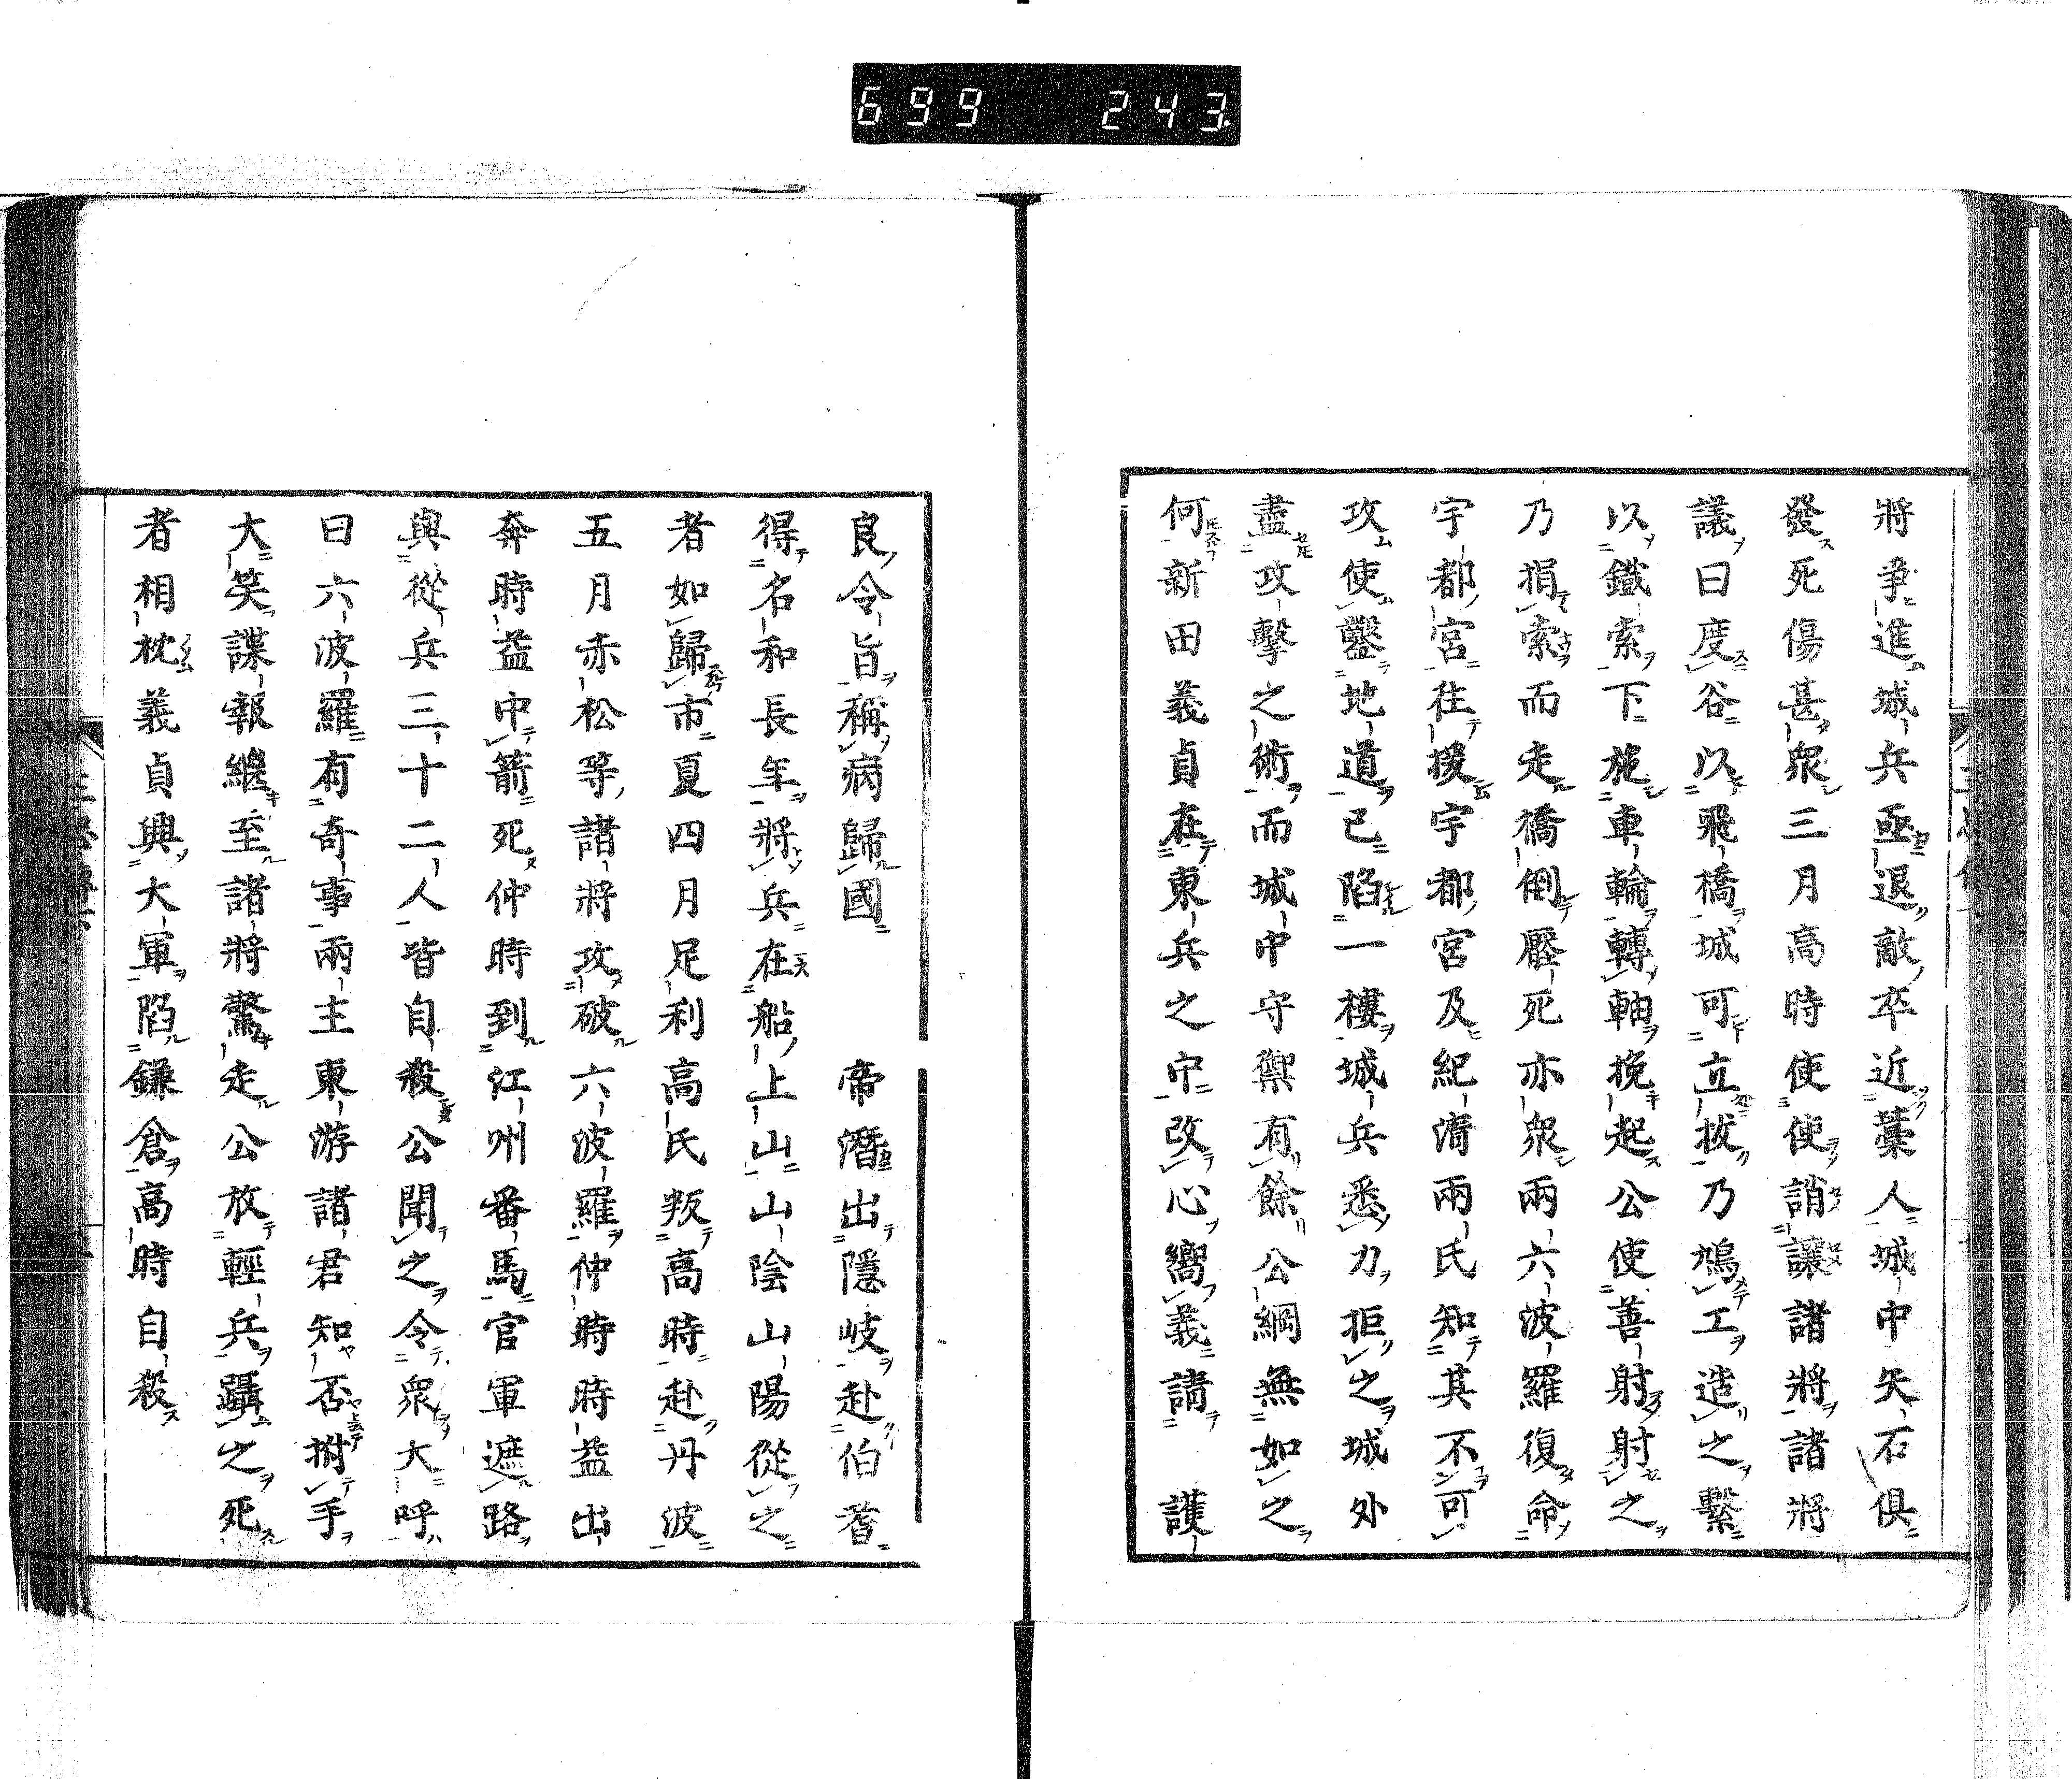 699 243
將爭進城兵亟退敵卒近藁人城中矢石俱
發死傷甚衆三月高時使使誚讓諸將諸將
議曰度谷以飛橋城可立拔乃鳩工造之繫
以鐵索下施車輪轉軸挽起公使善射射之
乃捐索而走橋倒壓死亦衆兩六波羅復命
宇都宮往援宇都宮及紀淸兩氏知其不可
攻使鑿地道已陷一樓城兵悉力拒之城外
盡攻擊之術而城中守禦有餘公綱無如之
何新田義貞在東兵之中改心嚮義請 護
良令旨稱病歸國 帝潛出隱岐赴伯耆
得名和長年將兵在船上山山陰山陽從之
者如歸市夏四月足利高氏叛高時赴丹波
五月赤松等諸將攻破六波羅仲時時益出
奔時益中箭死仲時到江州番馬官軍遮路
與從兵三十二人皆自殺公聞之令衆大呼
曰六波羅有奇事兩主東游諸君知否拊手
大笑諜報繼至諸將驚走公放輕兵躡之死
者相枕義貞興大軍陷鎌倉高時自殺